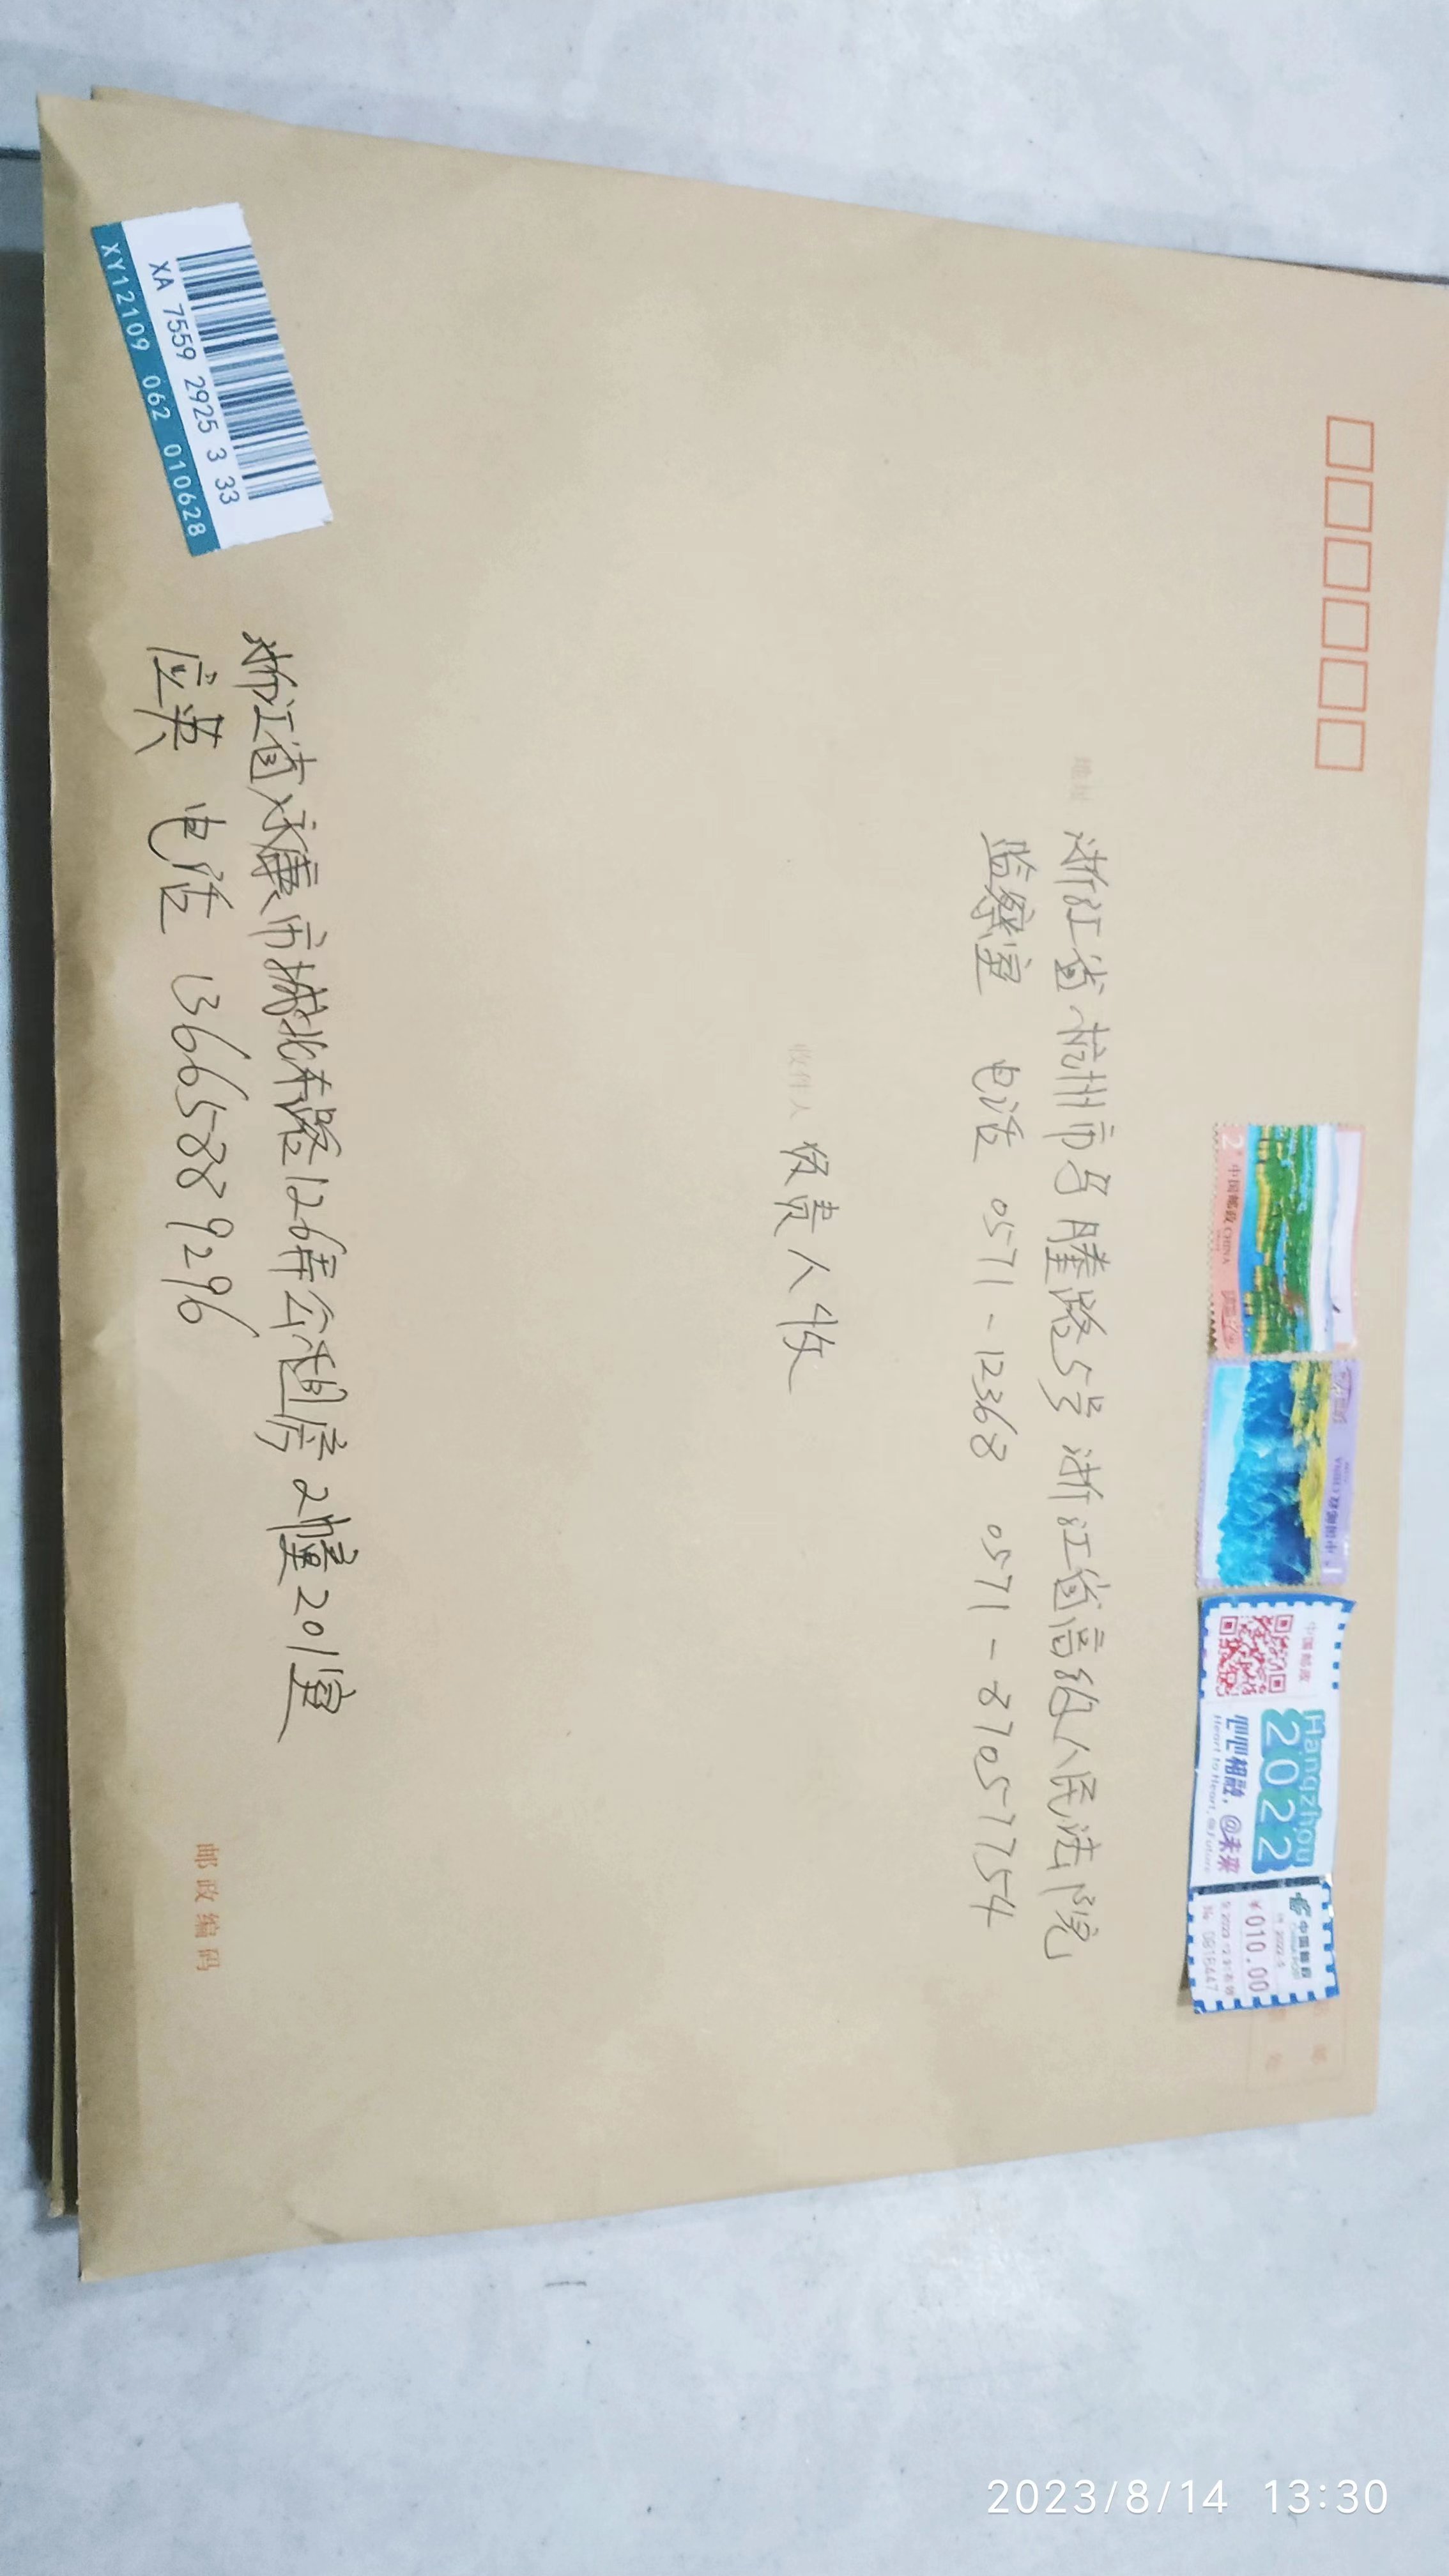 2 中国邮政 CHINA
中国邮政 CHINA 1
中国邮政
Hangzhou
2022
心心相融，@未来
Heart to Heart, @Future
中国邮政
CHINA POST
¥010.00
No. 0818447
地址 浙江省杭州市马塍路5号 浙江省高级人民法院
监察室 电话 0571-12368 0571-87057754
收件人 负责人收
浙江省永康市城北东路126弄公租房2幢201室
应英 电话 13665889296
XA 7559 2925 3 33
XY12109 062 010628
邮政编码
2023/8/14 13:30